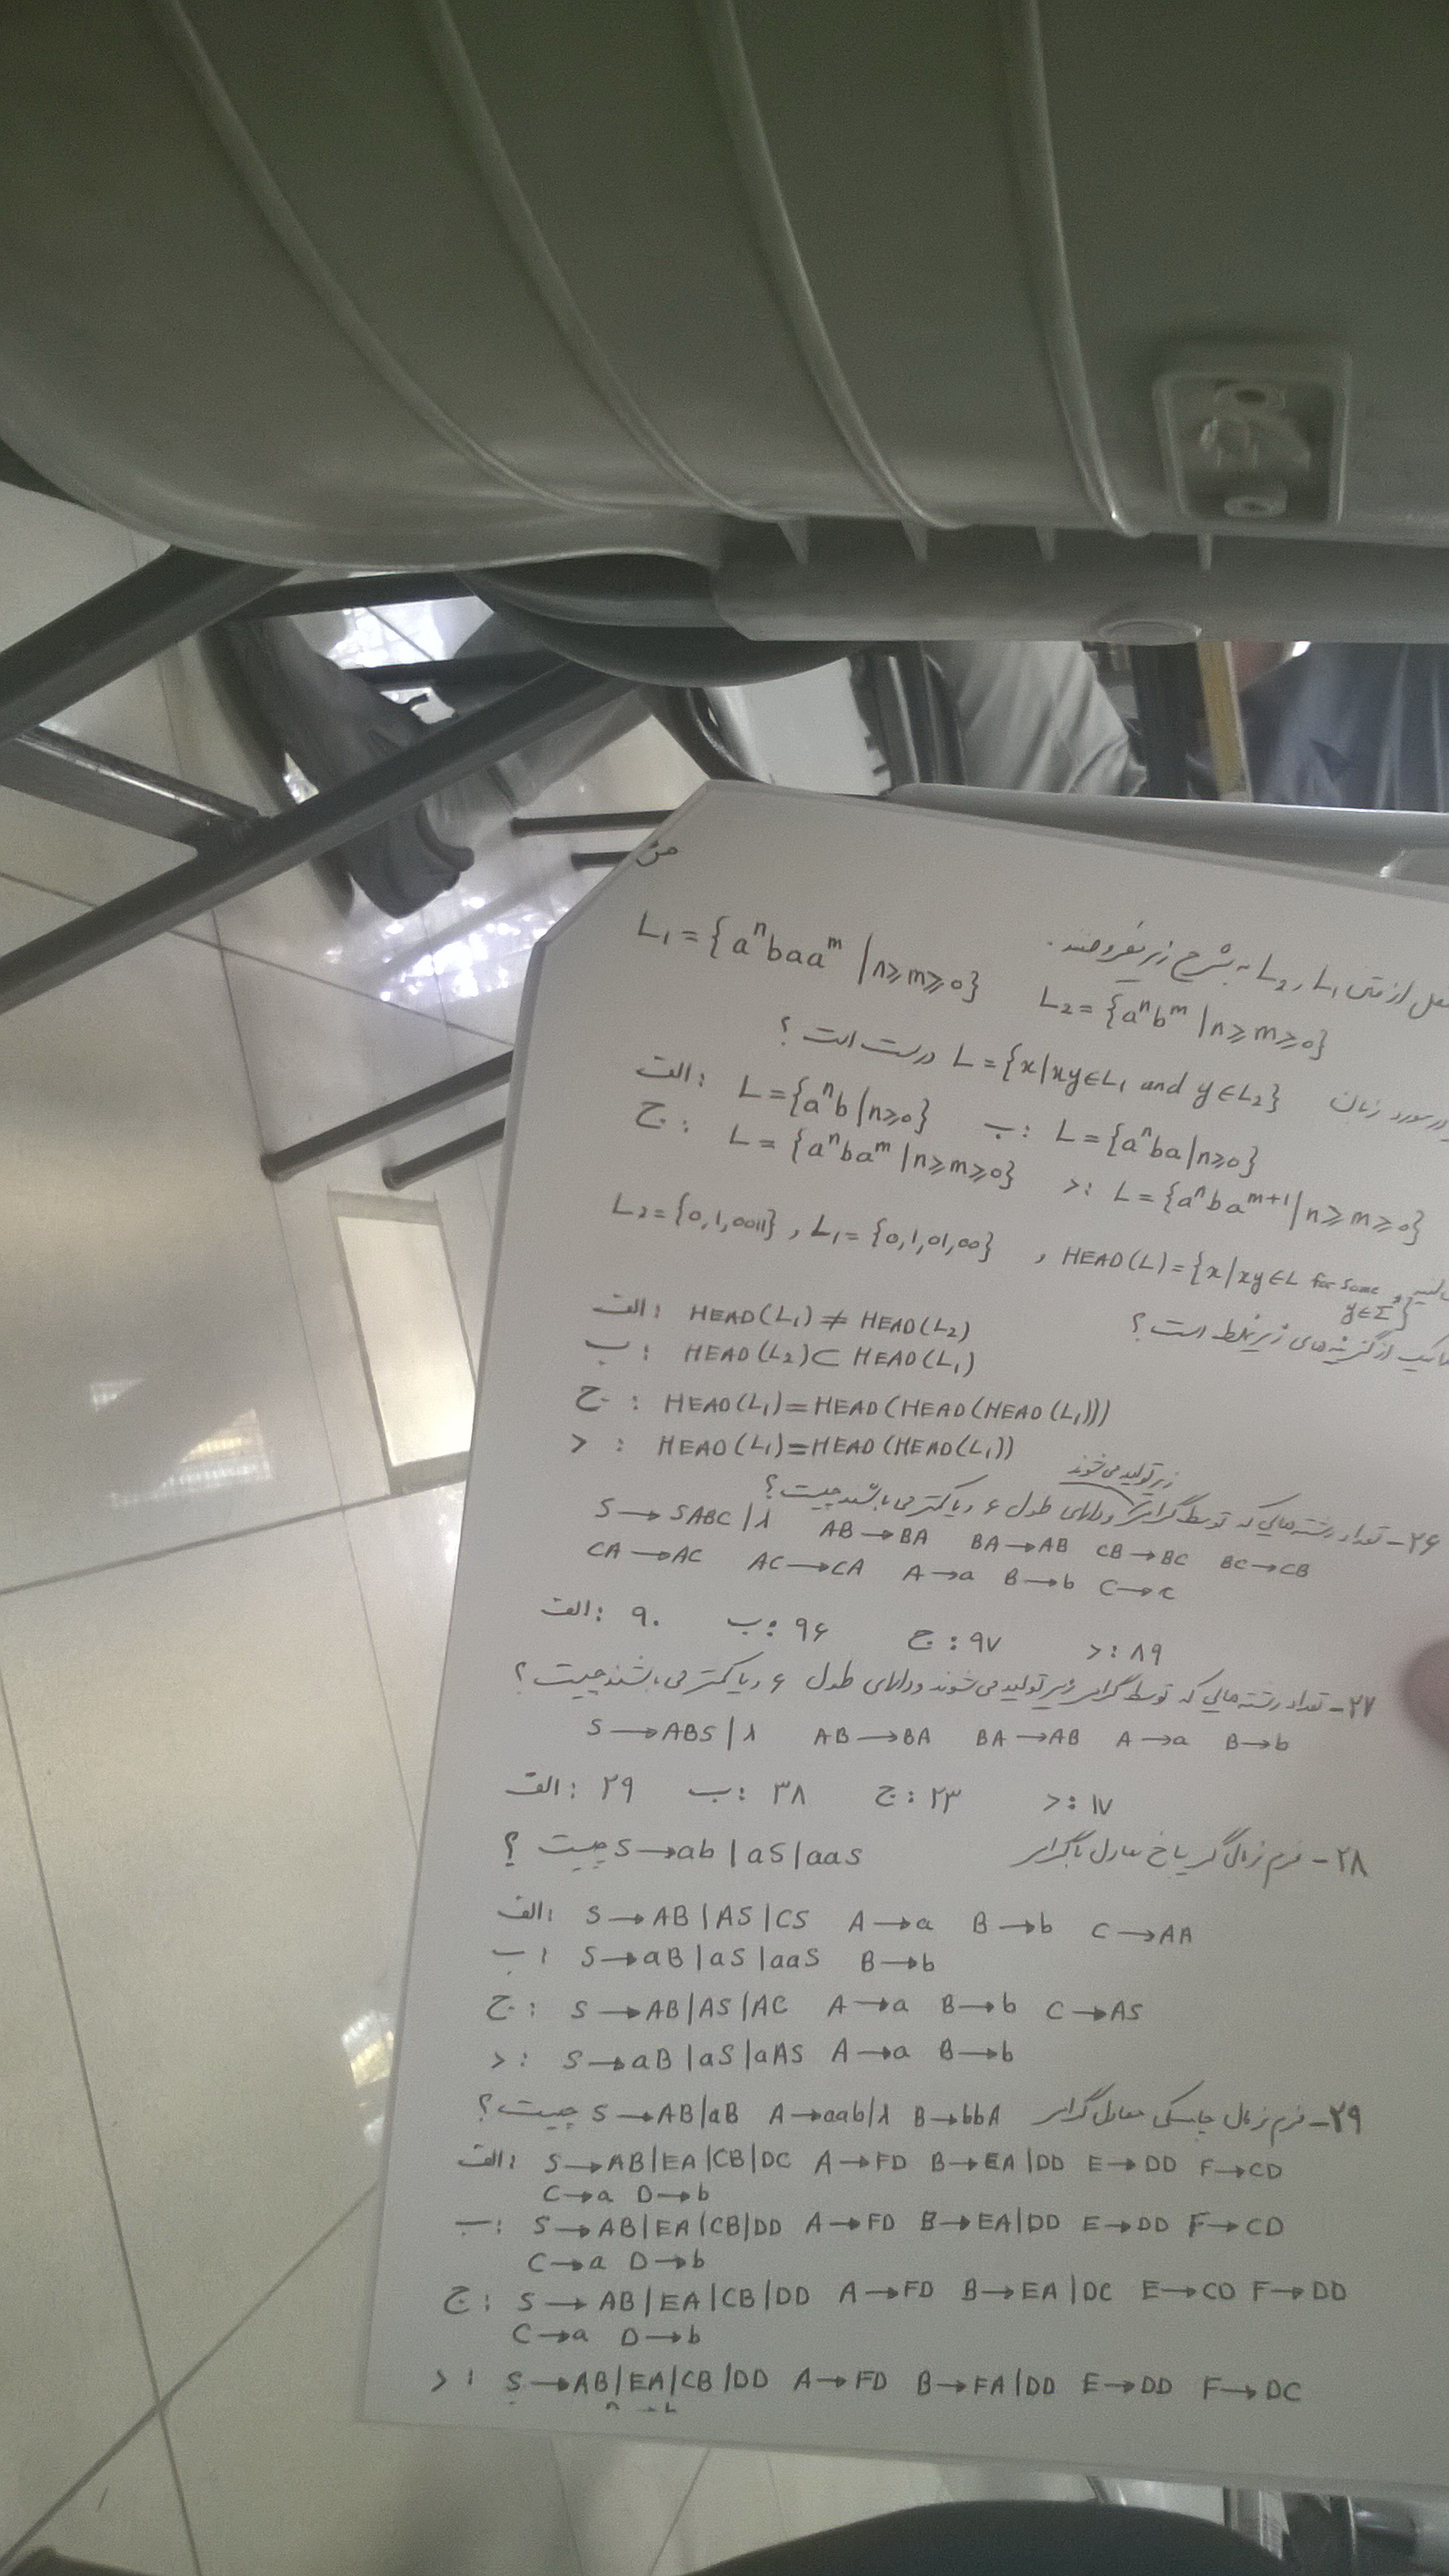 از متن L₁ و L₂ به شرح زیر مفروضند.
L₁ = {aⁿbaaᵐ | n≥m≥0} L₂ = {aⁿbᵐ | n≥m≥0}
در مورد زبان L = {x | xy∈L₁ and y∈L₂} درست است ؟
الف: L = {aⁿb | n≥0} ب: L = {aⁿba | n≥0}
ج: L = {aⁿbaᵐ | n≥m≥0} د: L = {aⁿbaᵐ⁺¹ | n≥m≥0}
L₂ = {0,1,0011} , L₁ = {0,1,01,00} , HEAD(L) = {x | xy∈L for some y∈Σ*}
از گزینه های زیر غلط است ؟
الف: HEAD(L₁) ≠ HEAD(L₂)
ب: HEAD(L₂) ⊂ HEAD(L₁)
ج: HEAD(L₁) = HEAD(HEAD(HEAD(L₁)))
د: HEAD(L₁) = HEAD(HEAD(L₁))
۲۶- تعداد رشته هایی که توسط گرامر زیر تولید می شوند و دارای طول ۶ و یا کمتر می باشند چیست؟
S → SABC | λ AB → BA BA → AB CB → BC BC → CB
CA → AC AC → CA A → a B → b C → c
الف: ۹۰ ب: ۹۶ ج: ۹۷ د: ۸۹
۲۷- تعداد رشته هایی که توسط گرامر زیر تولید می شوند و دارای طول ۶ و یا کمتر می باشند چیست؟
S → ABS | λ AB → BA BA → AB A → a B → b
الف: ۲۹ ب: ۳۸ ج: ۲۳ د: ۱۷
۲۸- فرم نرمال گریباخ معادل با گرامر S → ab | aS | aaS چیست ؟
الف: S → AB | AS | CS A → a B → b C → AA
ب: S → aB | aS | aaS B → b
ج: S → AB | AS | AC A → a B → b C → AS
د: S → aB | aS | aAS A → a B → b
۲۹- فرم نرمال چامسکی معادل گرامر S → AB | aB A → aab | λ B → bbA چیست؟
الف: S → AB | EA | CB | DC A → FD B → EA | DD E → DD F → CD
C → a D → b
ب: S → AB | EA | CB | DD A → FD B → EA | DD E → DD F → CD
C → a D → b
ج: S → AB | EA | CB | DD A → FD B → EA | DC E → CD F → DD
C → a D → b
د: S → AB | EA | CB | DD A → FD B → FA | DD E → DD F → DC